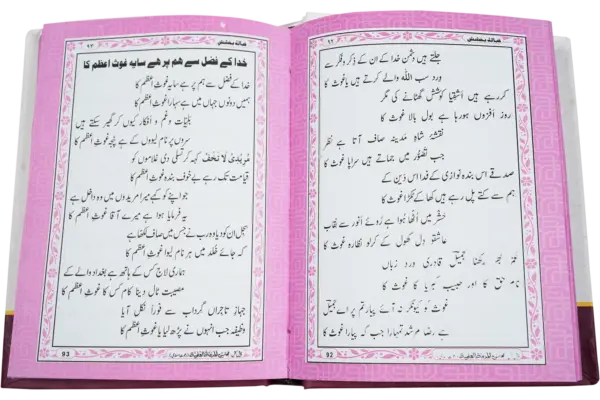 ۹۲
قبالۂ بخشش
جلتے ہیں دشمن خدا کے ان کے ذکر و فکر سے
ورد سب اللہ والے کرتے ہیں یا غوث کا
کر رہے ہیں اشقیا کوشش گھٹانے کی مگر
روز افزوں ہو رہا ہے بول بالا غوث کا
نقشۂ شاہِ مدینہ صاف آتا ہے نظر
جب تصور میں جماتے ہیں سراپا غوث کا
صدقے اس بندہ نوازی کے فدا اس دین کے
ہم سے کتے پل رہے ہیں کھا کے ٹکڑا غوث کا
حشر میں اُٹھا ہوا ہے رُوئے اَنور سے نقاب
عاشقو دل کھول کے کرلو نظارہ غوث کا
عمر بھر رکھنا جمیلِ قادری وردِ زباں
نام حق کا اور حبیبِ کبریا کا غوث کا
غوث کو کیونکر نہ آئے پیار تم پر اے جمیل
ہے رضا مرشد تمہارا جب کہ پیارا غوث کا
92
۹۳
قبالۂ بخشش
خدا کے فضل سے ہم پر ہے سایہ غوثِ اعظم کا
خدا کے فضل سے ہم پر ہے سایہ غوثِ اعظم کا
ہمیں دونوں جہاں میں ہے سہارا غوثِ اعظم کا
بلیّات و غم و افکار کیوں کر گھیر سکتے ہیں
سروں پر نام لیووں کے ہے پنجہ غوثِ اعظم کا
مُرِیْدِیْ لَا تَخَفْ کہہ کر تسلی دی غلاموں کو
قیامت تک رہے بے خوف بندہ غوثِ اعظم کا
جو اپنے کو کہے میرا مریدوں میں وہ داخل ہے
یہ فرمایا ہوا ہے میرے آقا غوثِ اعظم کا
سجل ان کو دیا وہ رب نے جس میں صاف لکھا ہے
کہ جائے خلد میں ہر نام لیوا غوثِ اعظم کا
ہماری لاج کس کے ہاتھ ہے بغداد والے کے
مصیبت ٹال دینا کام کس کا غوثِ اعظم کا
جہازِ تاجراں گرداب سے فوراً نکل آیا
وظیفہ جب انہوں نے پڑھ لیا یا غوثِ اعظم کا
93